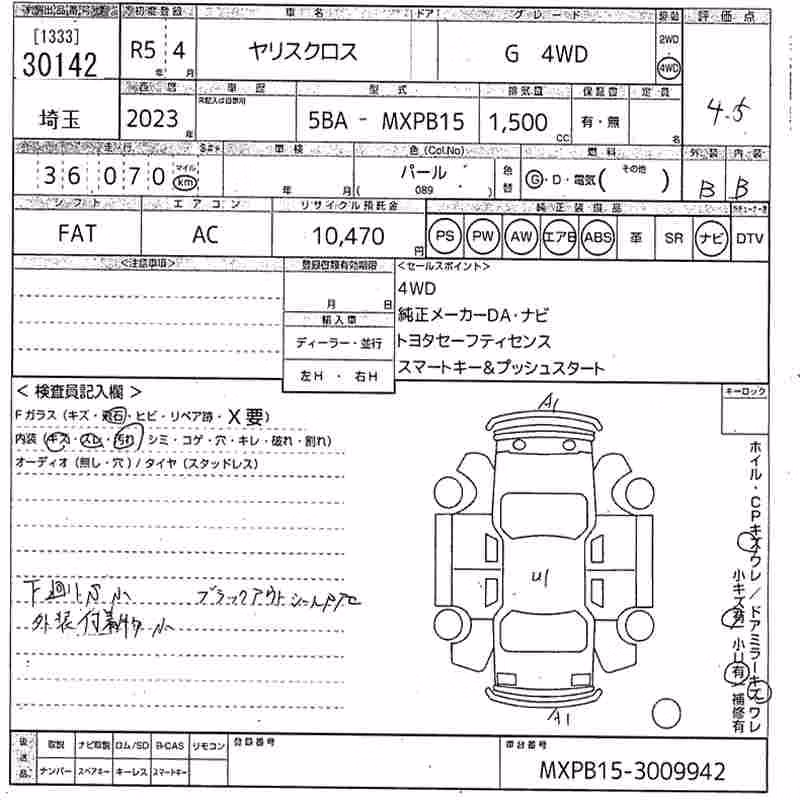 出品番号
[1333]
30142
初度登録 車名 ドア グレード 駆動 評価点
R5 年 4 月 ヤリスクロス G 4WD 2WD 4WD
埼玉
2023 年
車歴 型式 排気量 保証書 定員
5BA - MXPB15 1,500 CC 有・無 名
4.5
走行 車検 色(Col.No) 燃料 外装 内装
36070 マイル km 年 月 パール ( 089 ) 色替 G・D・電気( その他 ) B B
シフト エアコン リサイクル預託金 純正装備品
FAT AC 10,470 円 PS PW AW エアB ABS 革 SR ナビ DTV
<注意事項> 登録書類有効期限 <セールスポイント>
月 日
4WD
輸入車
純正メーカーDA・ナビ
ディーラー・並行
トヨタセーフティセンス
左H ・ 右H
スマートキー&プッシュスタート
< 検査員記入欄 >
キーロック
Fガラス (キズ・飛石・ヒビ・リペア跡・X要)
内装 (キズ・スレ・汚れ・シミ・コゲ・穴・キレ・破れ・割れ)
オーディオ (無し・穴) / タイヤ (スタッドレス)
A1
U1
A1
下廻りサ小
外装付着物 小
ホイル・CPキズワレ / ドアミラーキズワレ
小キズ有 小U有 補修有
後送品 取説 ナビ取説 ロム/SD B-CAS リモコン 登録番号 車台番号
ナンバー スペアキー キーレス スマートキー
MXPB15-3009942